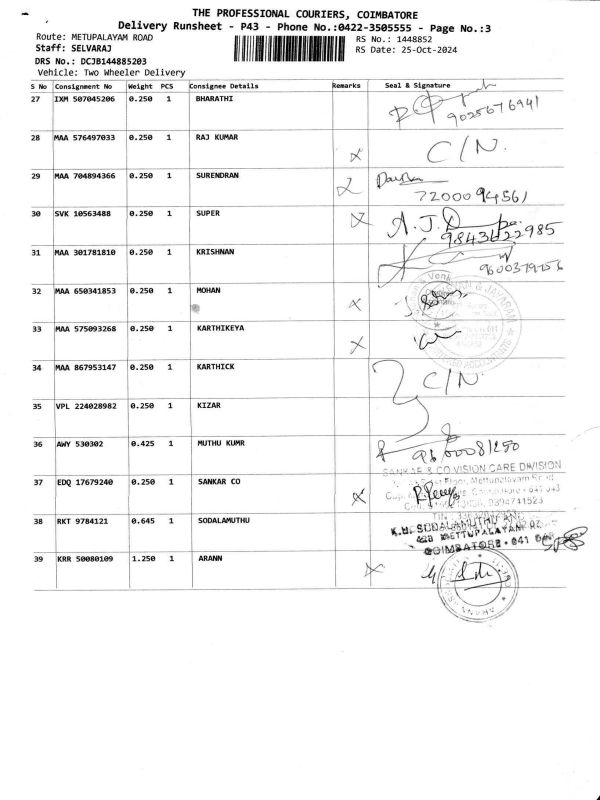 THE PROFESSIONAL COURIERS, COIMBATORE
Delivery Runsheet - P43 - Phone No.:0422-3505555 - Page No.:3
Route: METUPALAYAM ROAD RS No.: 1448852
Staff: SELVARAJ RS Date: 25-Oct-2024
DRS No.: DCJB144885203
Vehicle: Two Wheeler Delivery
S No Consignment No Weight PCS Consignee Details Remarks Seal & Signature
27 IXM 507045206 0.250 1 BHARATHI
9025676941
28 MAA 576497033 0.250 1 RAJ KUMAR C/N.
29 MAA 704894366 0.250 1 SURENDRAN
7200094561
30 SVK 10563488 0.250 1 SUPER A.J.
9843622985
31 MAA 301781810 0.250 1 KRISHNAN
32 MAA 650341853 0.250 1 MOHAN
33 MAA 575093268 0.250 1 KARTHIKEYA
34 MAA 867953147 0.250 1 KARTHICK C/N.
35 VPL 224028982 0.250 1 KIZAR
36 AWY 530302 0.425 1 MUTHU KUMR
SANKAR & CO VISION CARE DIVISION
37 EDQ 17679240 0.250 1 SANKAR CO
38 RKT 9784121 0.645 1 SODALAMUTHU
K.U. SODALAMUTHU AND
METTUPALAYAM
COIMBATORE - 641
39 KRR 50080109 1.250 1 ARANN